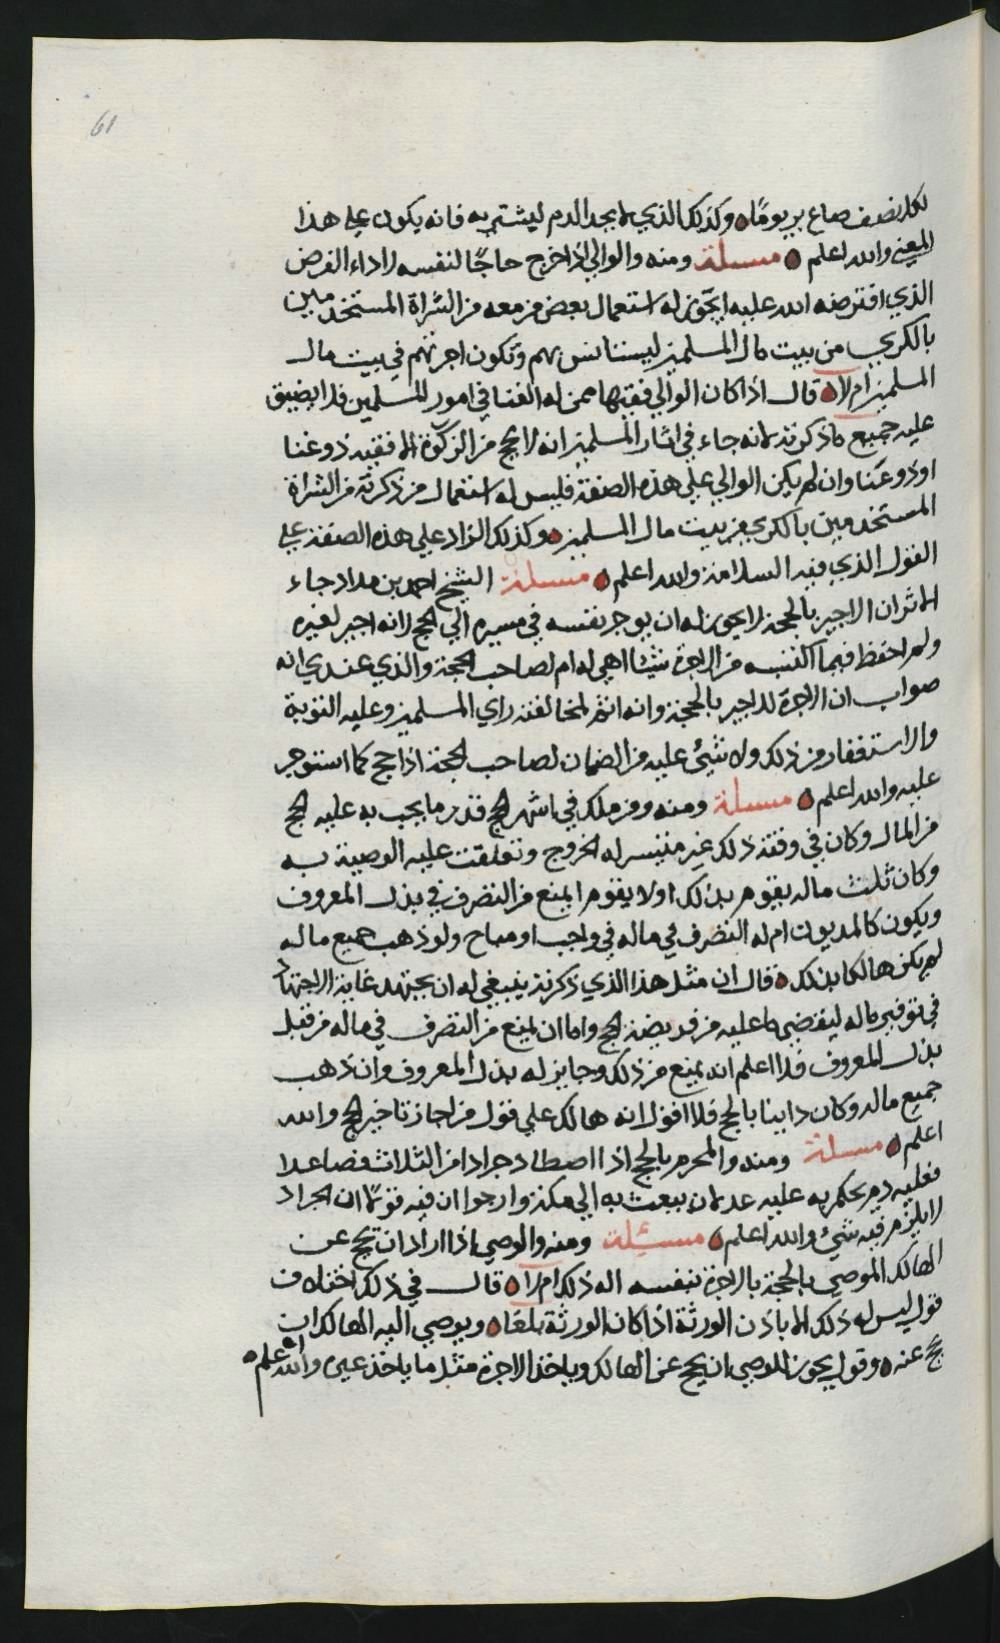 61
لكل نصف صاع بر يوما وكذلك الذي لا يجد الدم ليشتريه فانه يكون على هذا
المعنى والله اعلم مسئلة ومنه والوالي اذا خرج حاجا لنفسه لاداء الفرض
الذي افترضه الله عليه ايجوز له استعمال بعض من معه من الشراة المستخدمين
بالكري من بيت مال المسلمين ليستانس بهم وتكون اجرتهم في بيت مال
المسلمين ام لا قال اذا كان الوالي فقيها ممن له الغنا في امور المسلمين فلا يضيق
عليه جميع ما ذكرته لانه جاء في اثار المسلمين انه لا يحج من الزكوة الا فقيه ذو غنا
او ذو عنا وان لم يكن الوالي على هذه الصفة فليس له استعمال من ذكرته من الشراة
المستخدمين بالكري من بيت مال المسلمين وكذلك الزاد على هذه الصفة على
القول الذي فيه السلامة والله اعلم مسئلة الشيخ احمد بن مداد جاء
الاثر ان الاجير بالحجة لا يجوز له ان يوجر نفسه في مسيره الى الحج لانه اجير لغيره
ولم احفظ فيما اكتسبه من الاجرة شيئا اهي له ام لصاحب الحجة والذي عندي انه
صواب ان الاجرة للاجير بالحجة وانه اثم لمخالفته راي المسلمين وعليه التوبة
والاستغفار من ذلك ولا شئ عليه من الضمان لصاحب الحجة اذا حج كما استوجر
عليه والله اعلم مسئلة ومنه ومن ملك في اشهر الحج قدر ما يجب به عليه الحج
من المال وكان في وقته ذلك غير متيسر له الخروج وتعلقت عليه الوصية به
وكان ثلث ماله يقوم بذلك او لا يقوم ايمنع من التصرف في بذل المعروف
ويكون كالمديون ام له التصرف في ماله في واجب او مباح ولو ذهب جميع ماله
لم يكن هالكا بذلك قال ان مثل هذا الذي ذكرته ينبغي له ان يجتهد غاية الاجتهاد
في توفير ماله ليقضي ما عليه من فريضة الحج واما ان يمنع من التصرف في ماله من قبل
بذل المعروف فلا اعلم انه يمنع من ذلك وجايز له بذل المعروف وان ذهب
جميع ماله وكان داينا بالحج فلا اقول انه هالك على قول من اجاز تاخير الحج والله
اعلم مسئلة ومنه والمحرم بالحج اذا اصطاد جرادا من الثلاث فصاعدا
فعليه دم يحكم به عليه عدلان يبعث به الى مكة وارجوا ان فيه قولا ان الجراد
لا يلزم فيه شئ والله اعلم مسئلة ومنه والوصي اذا اراد ان يحج عن
الهالك الموصي بالحجة بالاجرة بنفسه اله ذلك ام لا قال في ذلك اختلاف
قول ليس له ذلك الا باذن الورثة اذا كان الورثة بلغا ويوصي اليه الهالك ان
يحج عنه وقول يجوز للوصي ان يحج عن الهالك وياخذ الاجرة مثل ما ياخذ غيره والله اعلم